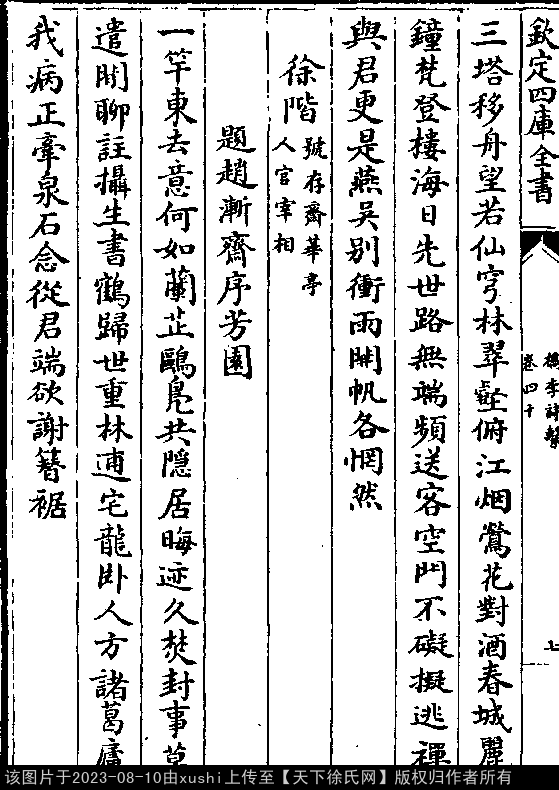 欽定四庫全書
檇李詩繫
卷四十
七
三塔移舟望若仙穹林翠壑俯江烟鶯花對酒春城麗
鐘梵登樓海日先世路無端頻送客空門不礙擬逃禪
與君更是燕吳別衝雨開帆各惘然
徐階號存齋華亭
人官宰相
題趙漸齋序芳園
一竿東去意何如蘭芷鷗鳬共隠居晦迹久焚封事草
遣閒聊註攝生書鶴歸世重林逋宅龍卧人方諸葛廬
我病正牽泉石念從君端欲謝簪裾
该图片于2023-08-10由xushi上传至【天下徐氏网】版权归作者所有